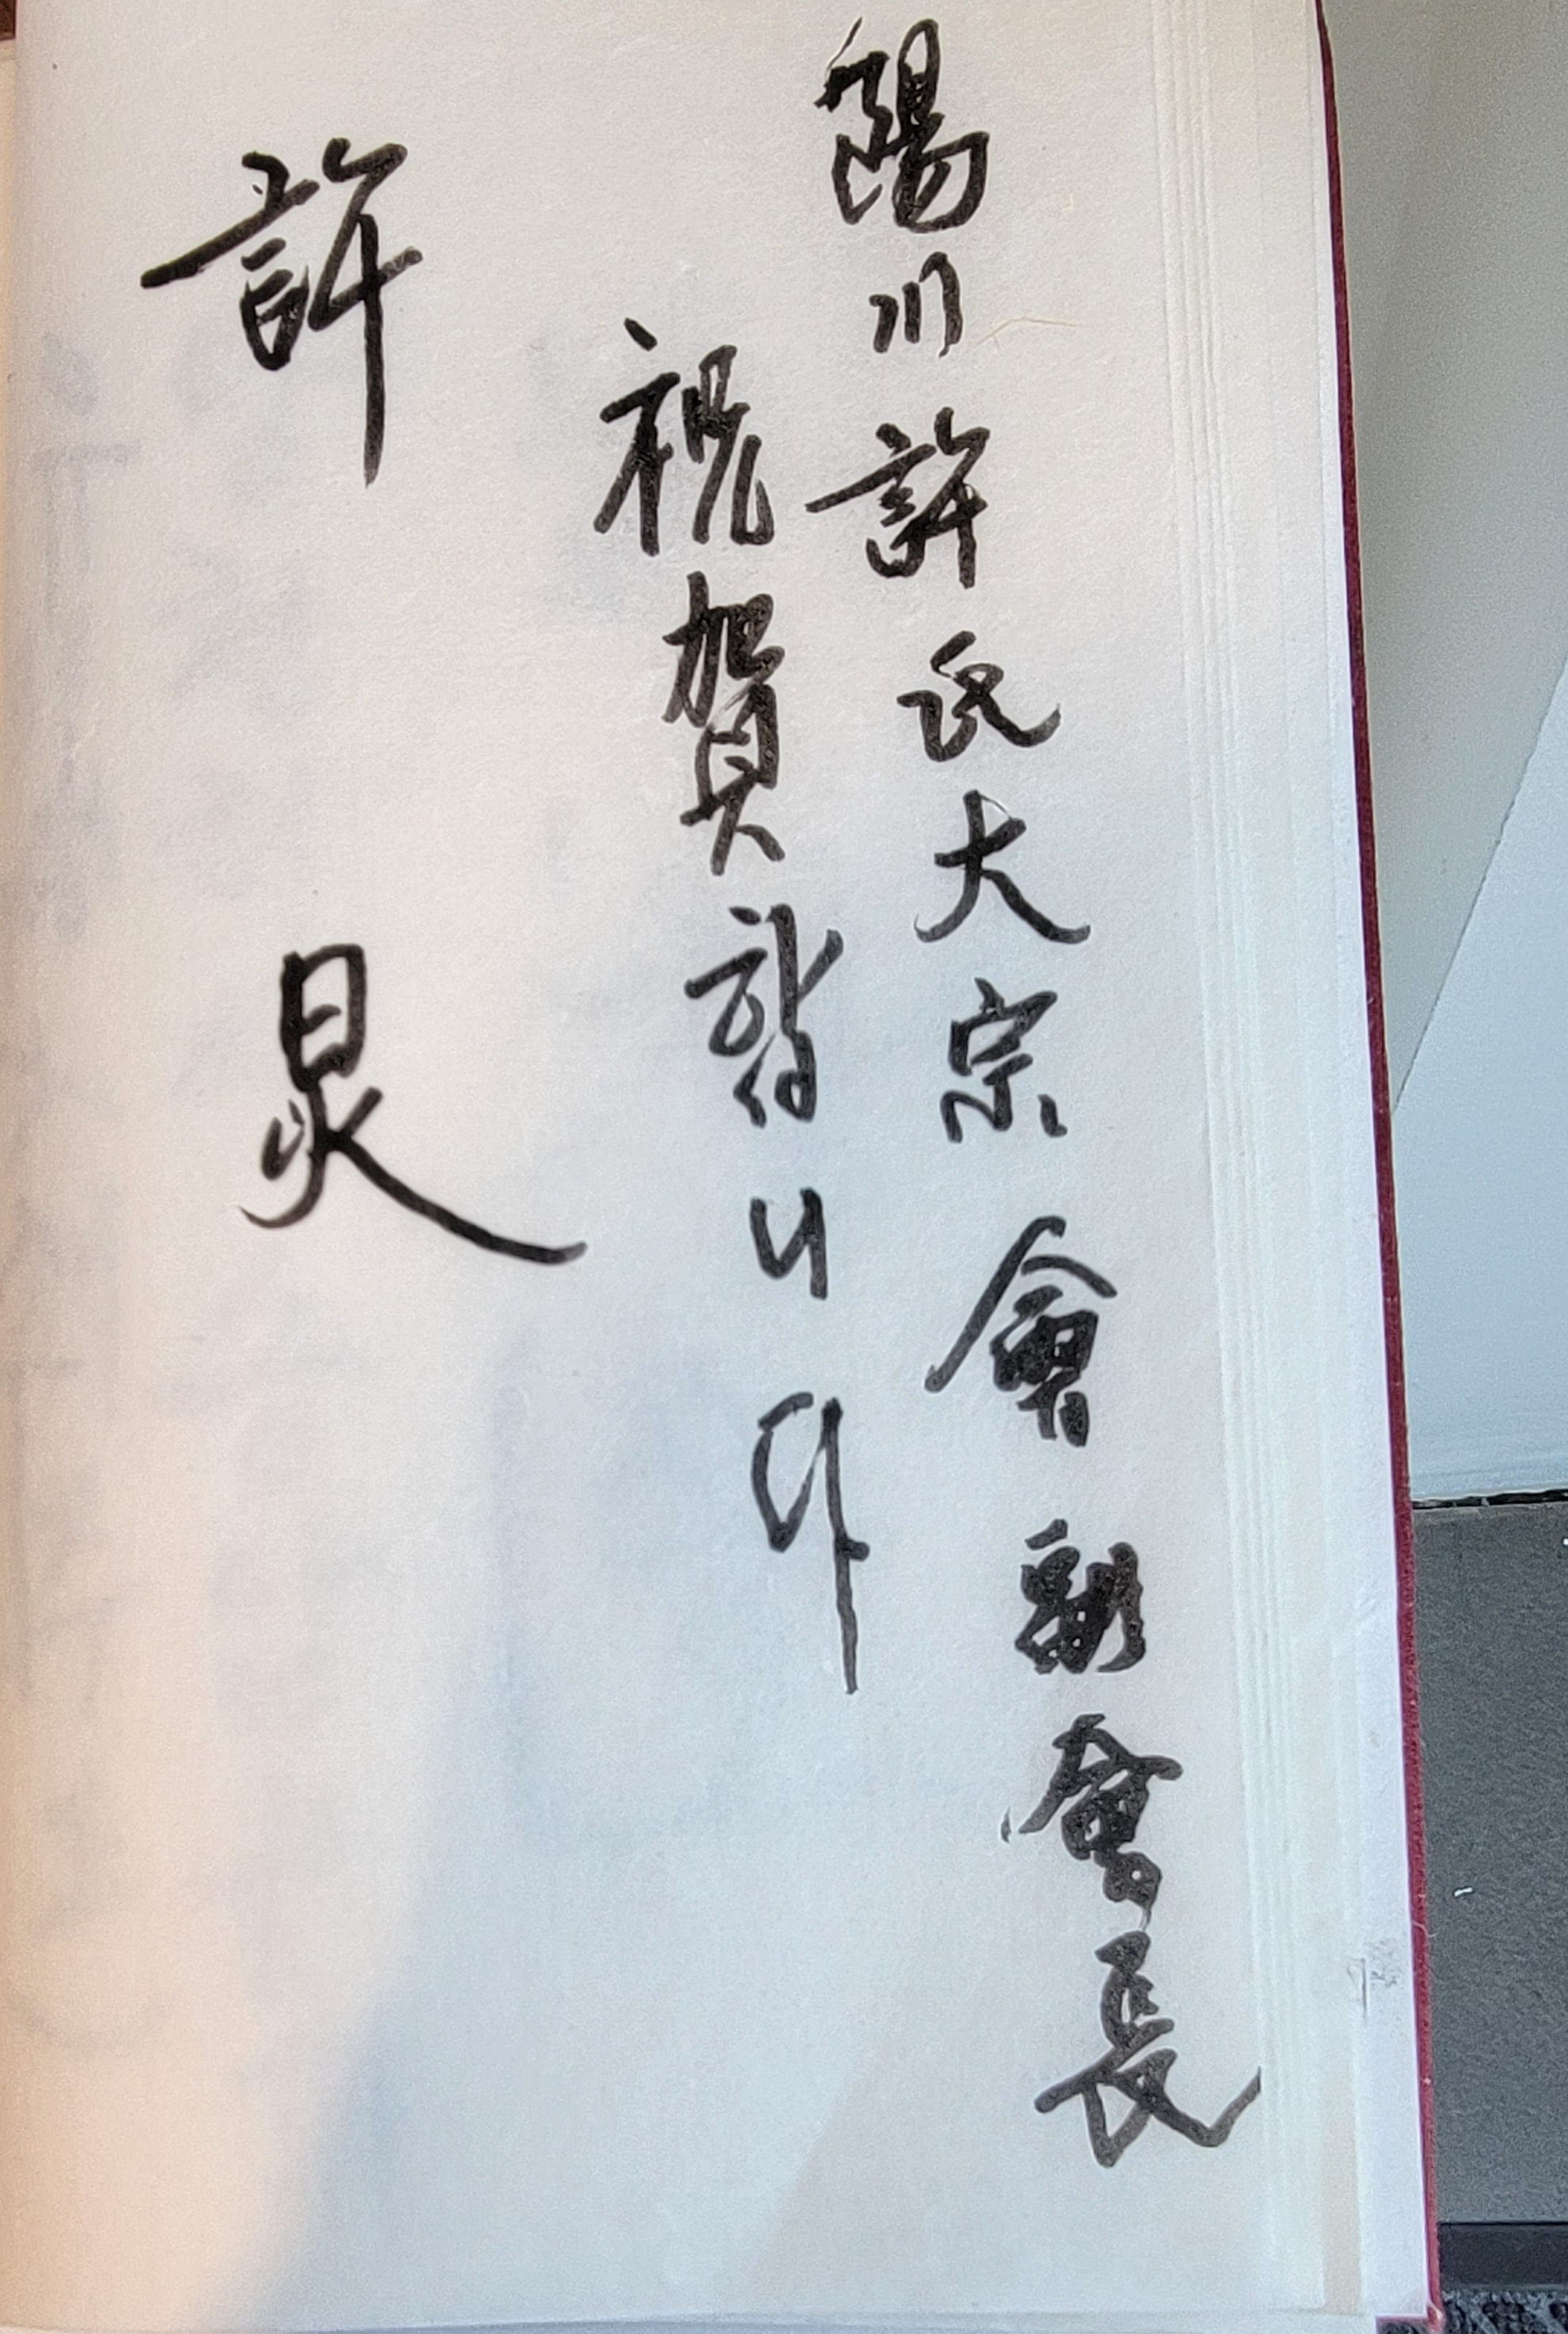 陽川許氏大宗會 副會長
祝賀합니다
許 炅